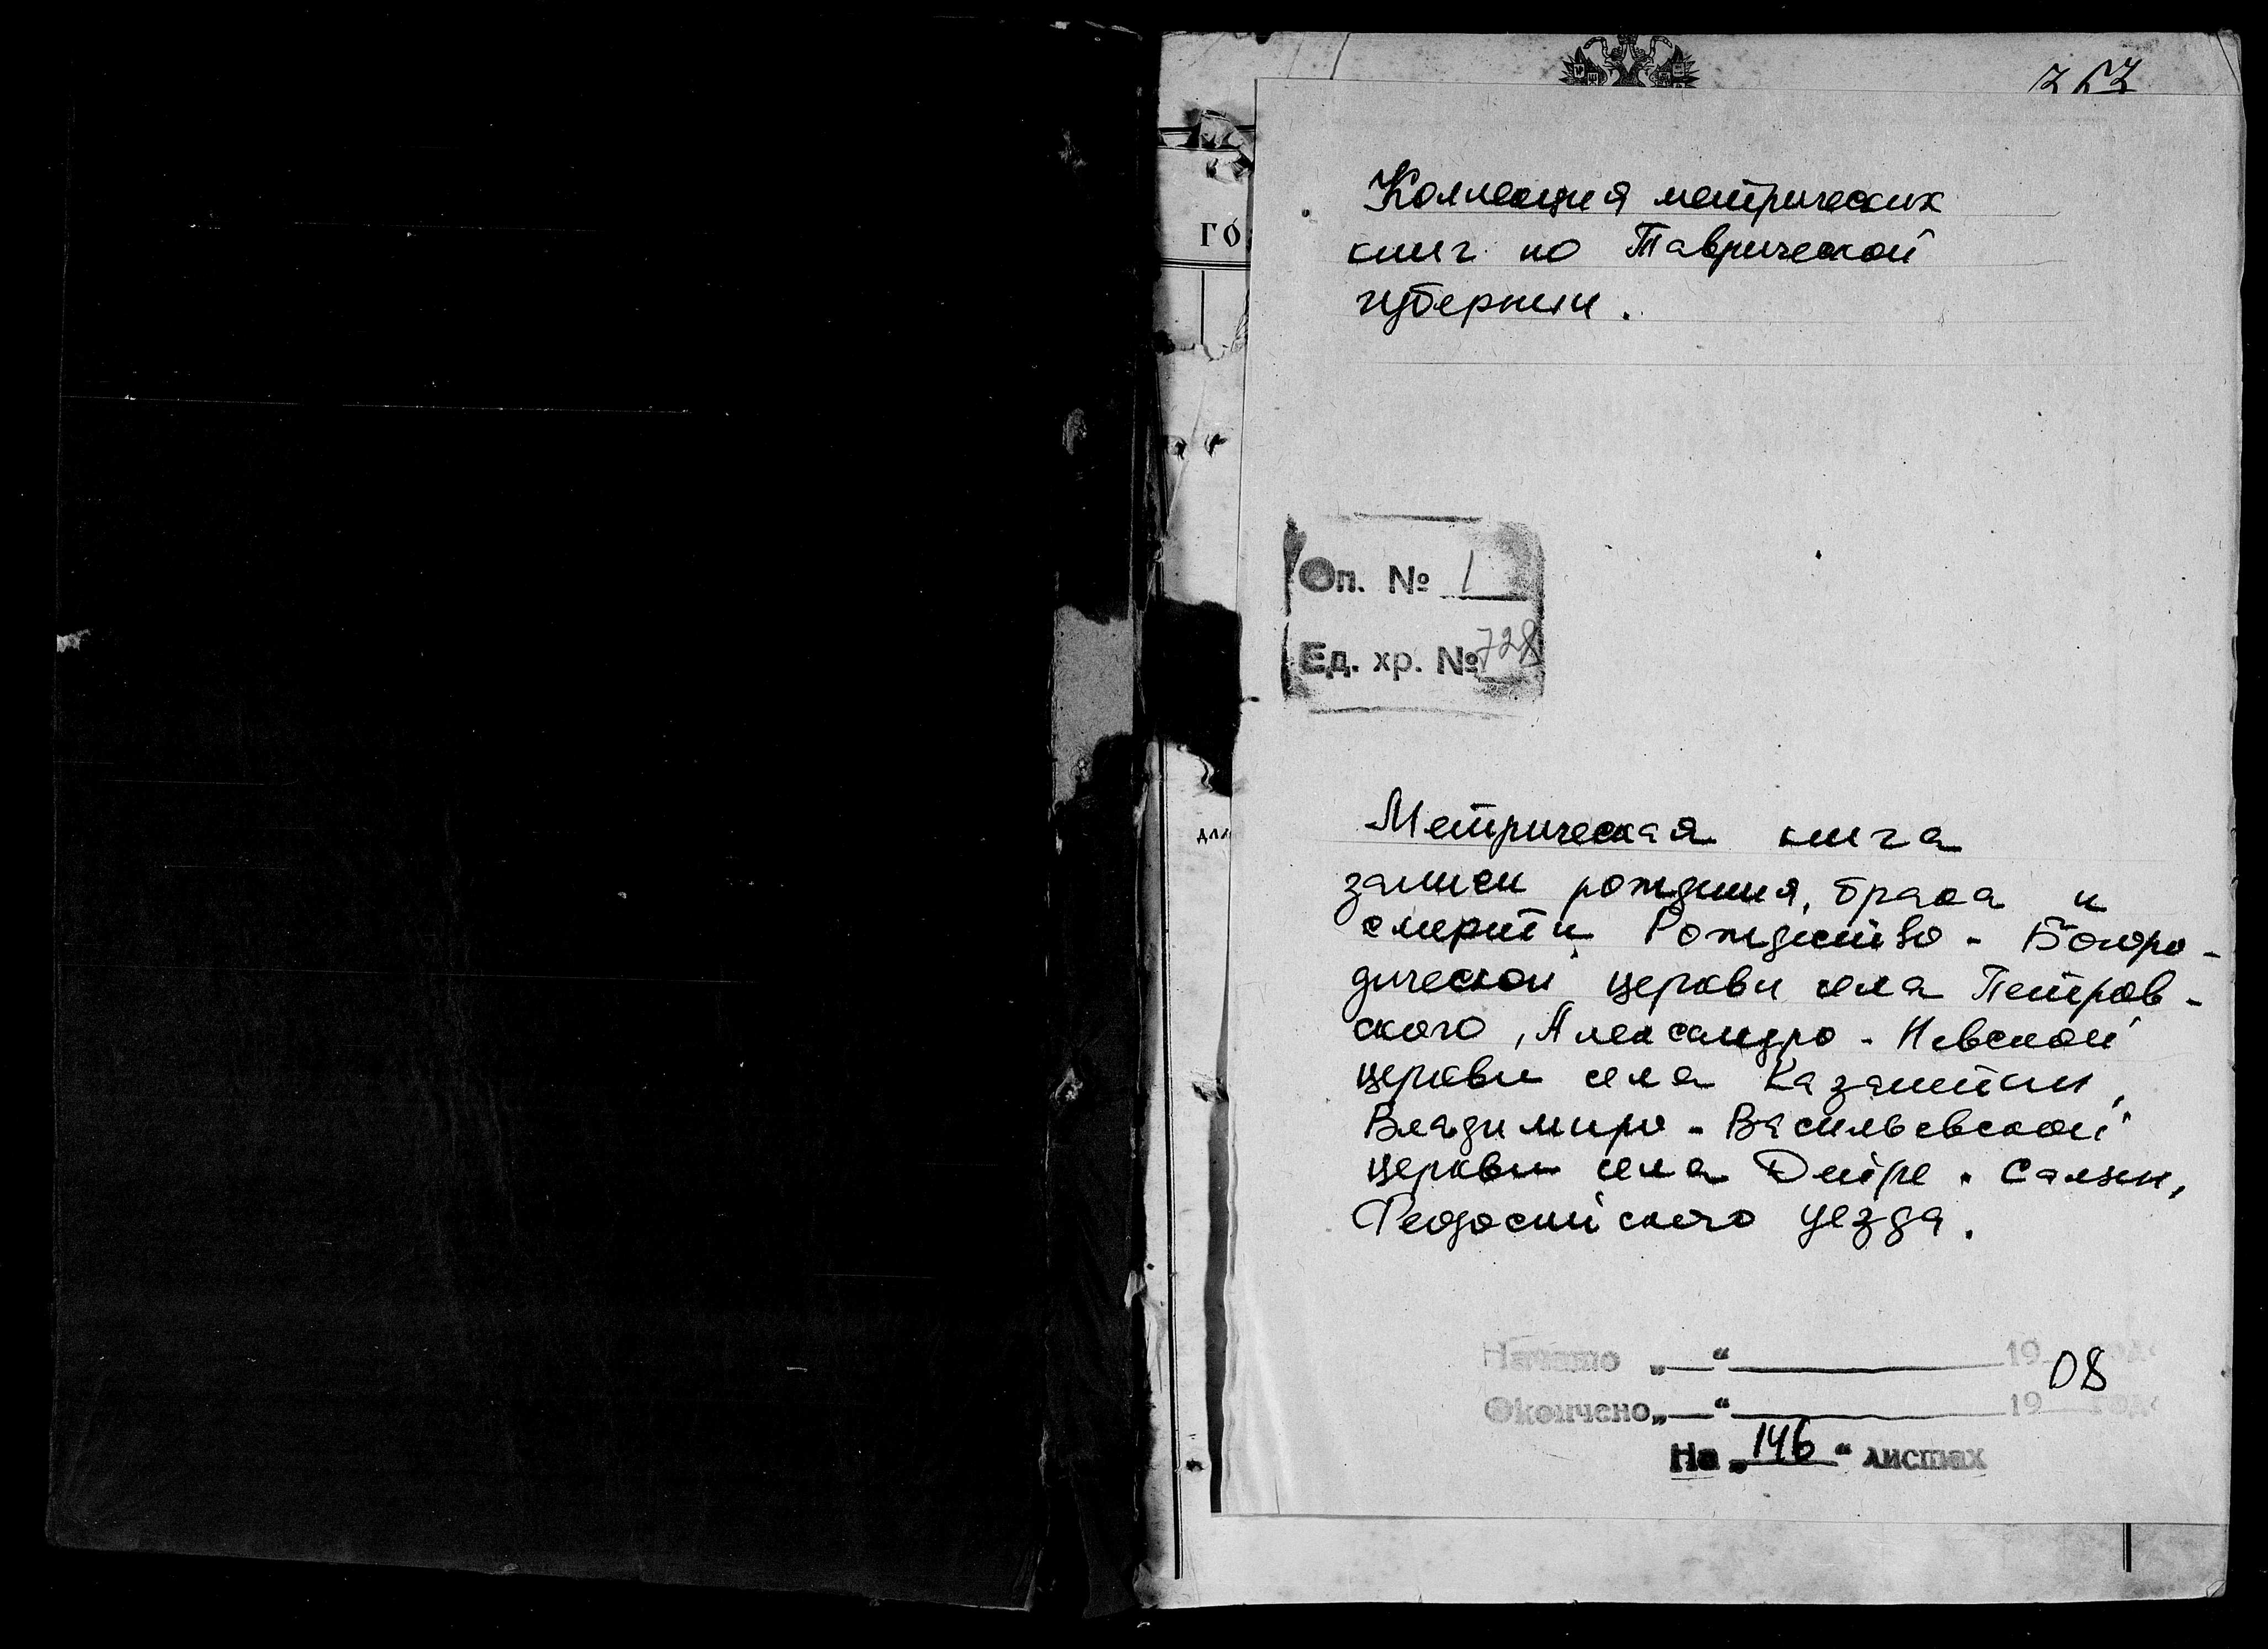 ГО
Коллекция метрических
книг по Таврической
губернии.
Оп. № 1
Ед. хр. № 728
Метрическая книга
записи рождения, брака и
смерти Рождество-Богоро-
дической церкви села Петров-
ского, Александро-Невской
церкви села Казантип,
Владимиро-Васильевской
церкви села Дмитре-Салын,
Феодосийского уезда.
Начато „ — “ 19 08 года
Окончено „ — “ 19 года
На „ 146 “ листах